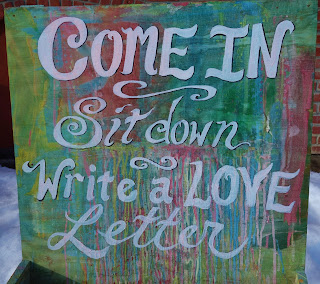 COME IN
Sit down
Write a LOVE
Letter